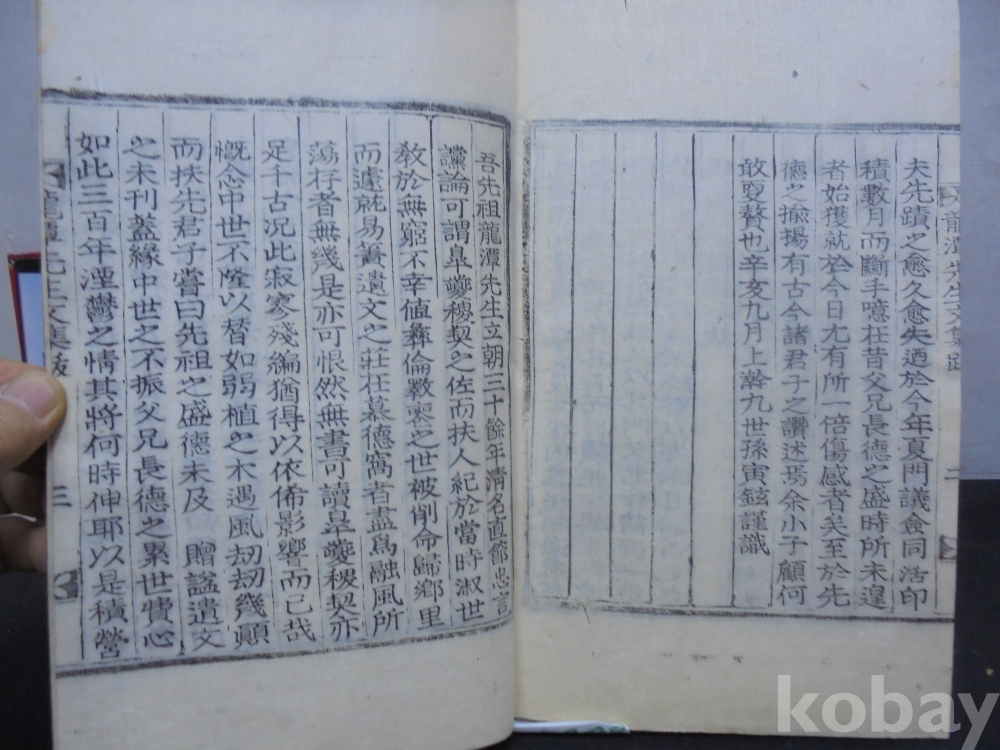 夫先蹟之愈久愈失迺於今年夏門議僉同活印
積數月而斷手噫在昔父兄長德之盛時所未遑
者始獲就於今日尤有所一倍傷感者矣至於先
德之揄揚有古今諸君子之讚述焉余小子顧何
敢更贅也辛亥九月上澣九世孫寅鉉謹識
吾先祖龍潭先生立朝三十餘年淸名直節忠言
讜論可謂皐夔稷契之佐而扶人紀於當時淑世
敎於無窮不幸値彝倫斁喪之世被削命歸鄕里
而遽就易簀遺文之莊在慕德窩者盡爲融風所
蕩存者無幾是亦可恨然無書可讀皐夔稷契亦
足千古況此寂寥殘編猶得以依俙影響而已哉
慨念中世不隆以替如弱植之木遇風刧刧幾顚
而挾先君子嘗曰先祖之盛德未及 贈諡遺文
之未刊蓋緣中世之不振父兄長德之累世費心
如此三百年湮鬱之情其將何時伸耶以是積營
龍潭先生文集跋
二
龍潭先生文集跋
三
kobay